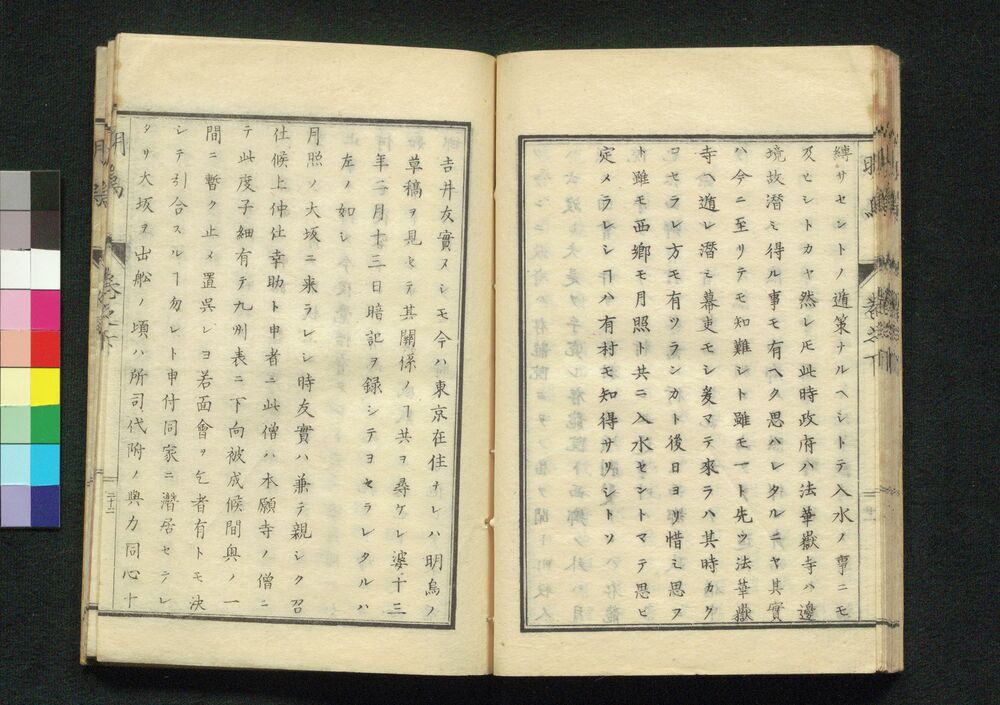 縛サセントノ遁策ナルヘシトテ入水ノ事ニモ
及ヒシトカヤ然レ𪜈此時政府ハ法華嶽寺ハ邊
境故潜ミ得ル事モ有ヘク思ハレタルニヤ其實
ハ今ニ至リテモ知難シト雖モ一ト先ツ法華嶽
寺ヘ遁レ潜ミ幕吏モシ爰マテ來ラハ其時カク
コセラレ方モ有ツランカト後日ヨリ惜ミ思フ
ト雖モ西郷モ月照ト共ニ入水セントマテ思ヒ
定メラレシヿハ有村モ知得サリシトソ
吉井友實ヌシモ今ハ東京在住ナレハ明烏ノ
草稿ヲ見セテ其關係ノヿ共ヲ尋ケレ婆十三
年二月十三日暗記ヲ録シテヨセラレタルハ
左ノ如シ
月照ノ大坂ニ来ラレシ時友實ハ兼テ親シク召
仕候上仲仕幸助ト申者ニ此僧ハ本願寺ノ僧ニ
テ此度子細有テ九州表ニ下向被成候間奥ノ一
間ニ暫ク止メ置呉レヨ若面會ヲ乞者有トモ決
シテ引合スルヿ勿レト申付同家ニ潜居セラレ
タリ大坂ヲ出舩ノ頃ハ所司代附ノ與力同心十
明烏
卷之下